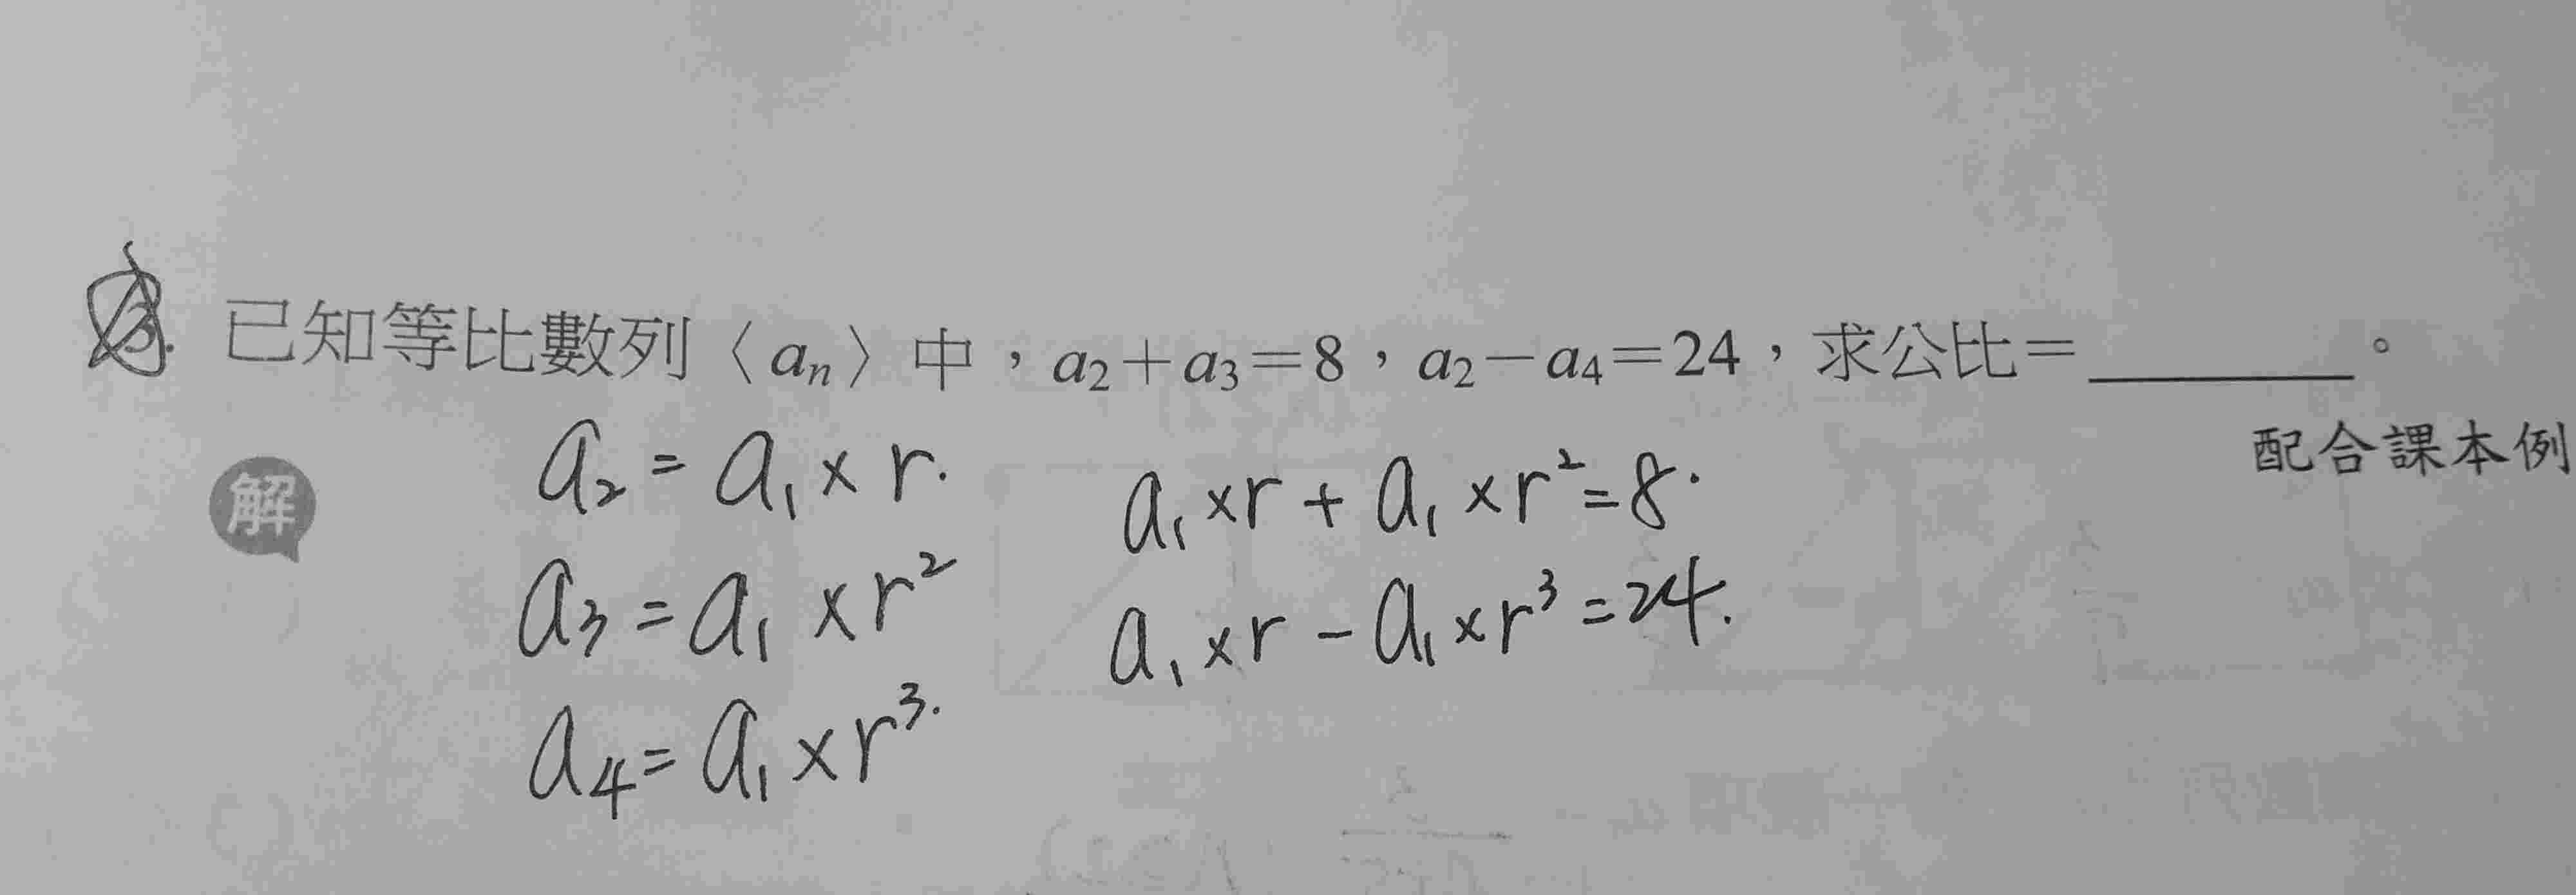 3. 已知等比數列〈aₙ〉中，a₂＋a₃＝8，a₂－a₄＝24，求公比＝________。
配合課本例
解
a₂ = a₁ × r.
a₁ × r + a₁ × r² = 8.
a₃ = a₁ × r²
a₁ × r - a₁ × r³ = 24.
a₄ = a₁ × r³.